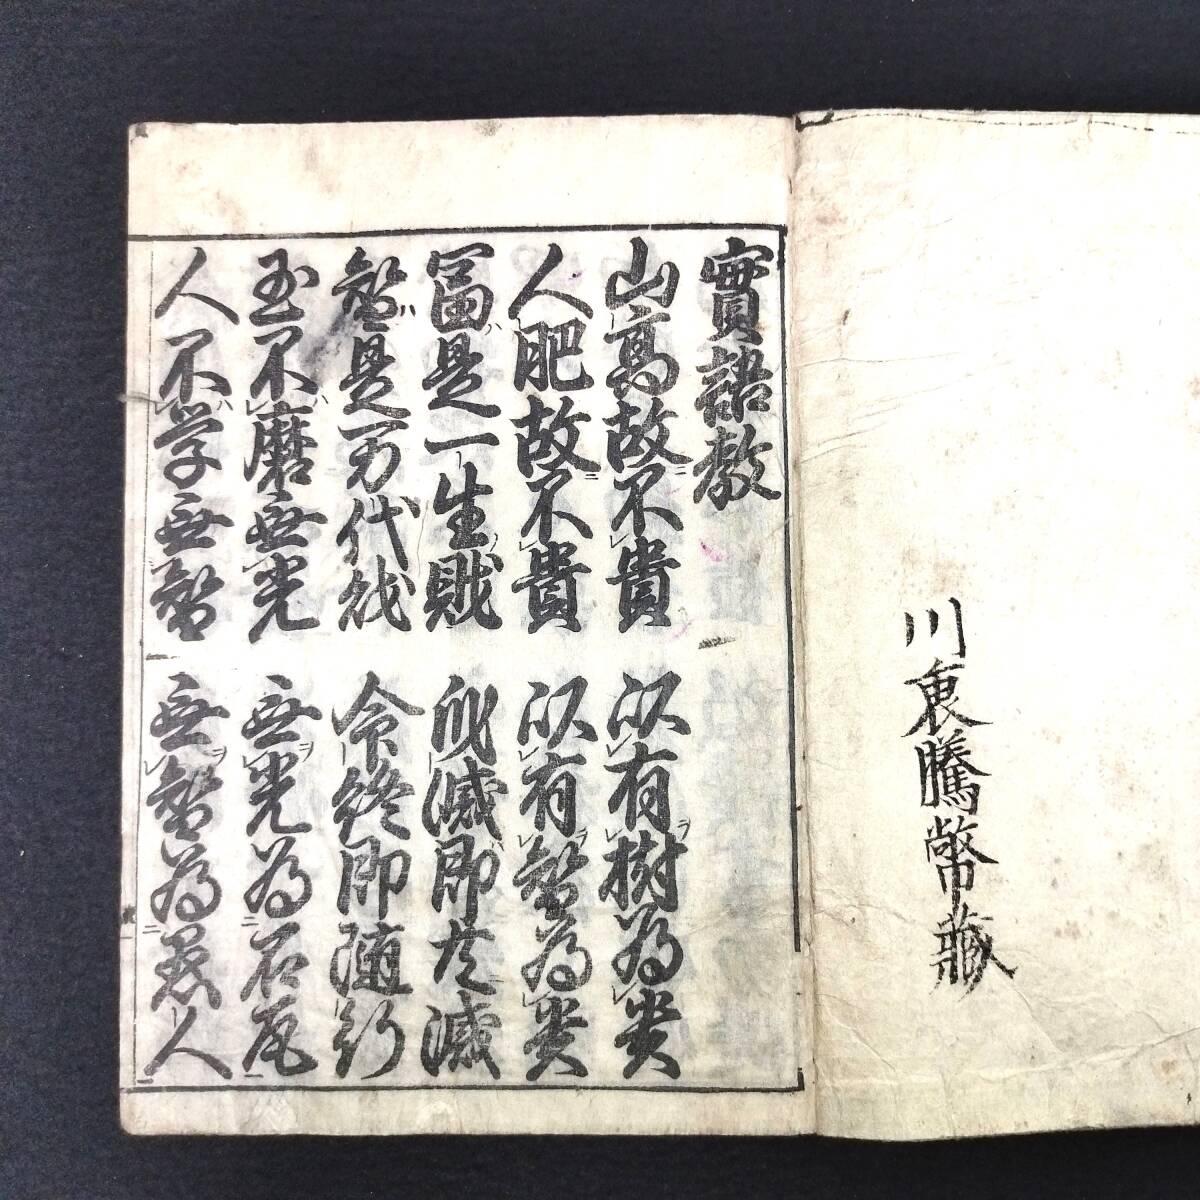 川騰幣藏
實語教
山高故不貴 以有樹為貴
人肥故不貴 以有智為貴
冨是一生財 身滅即共滅
智是万代財 命終即随行
玉不磨無光 無光為石瓦
人不学無智 無智為愚人